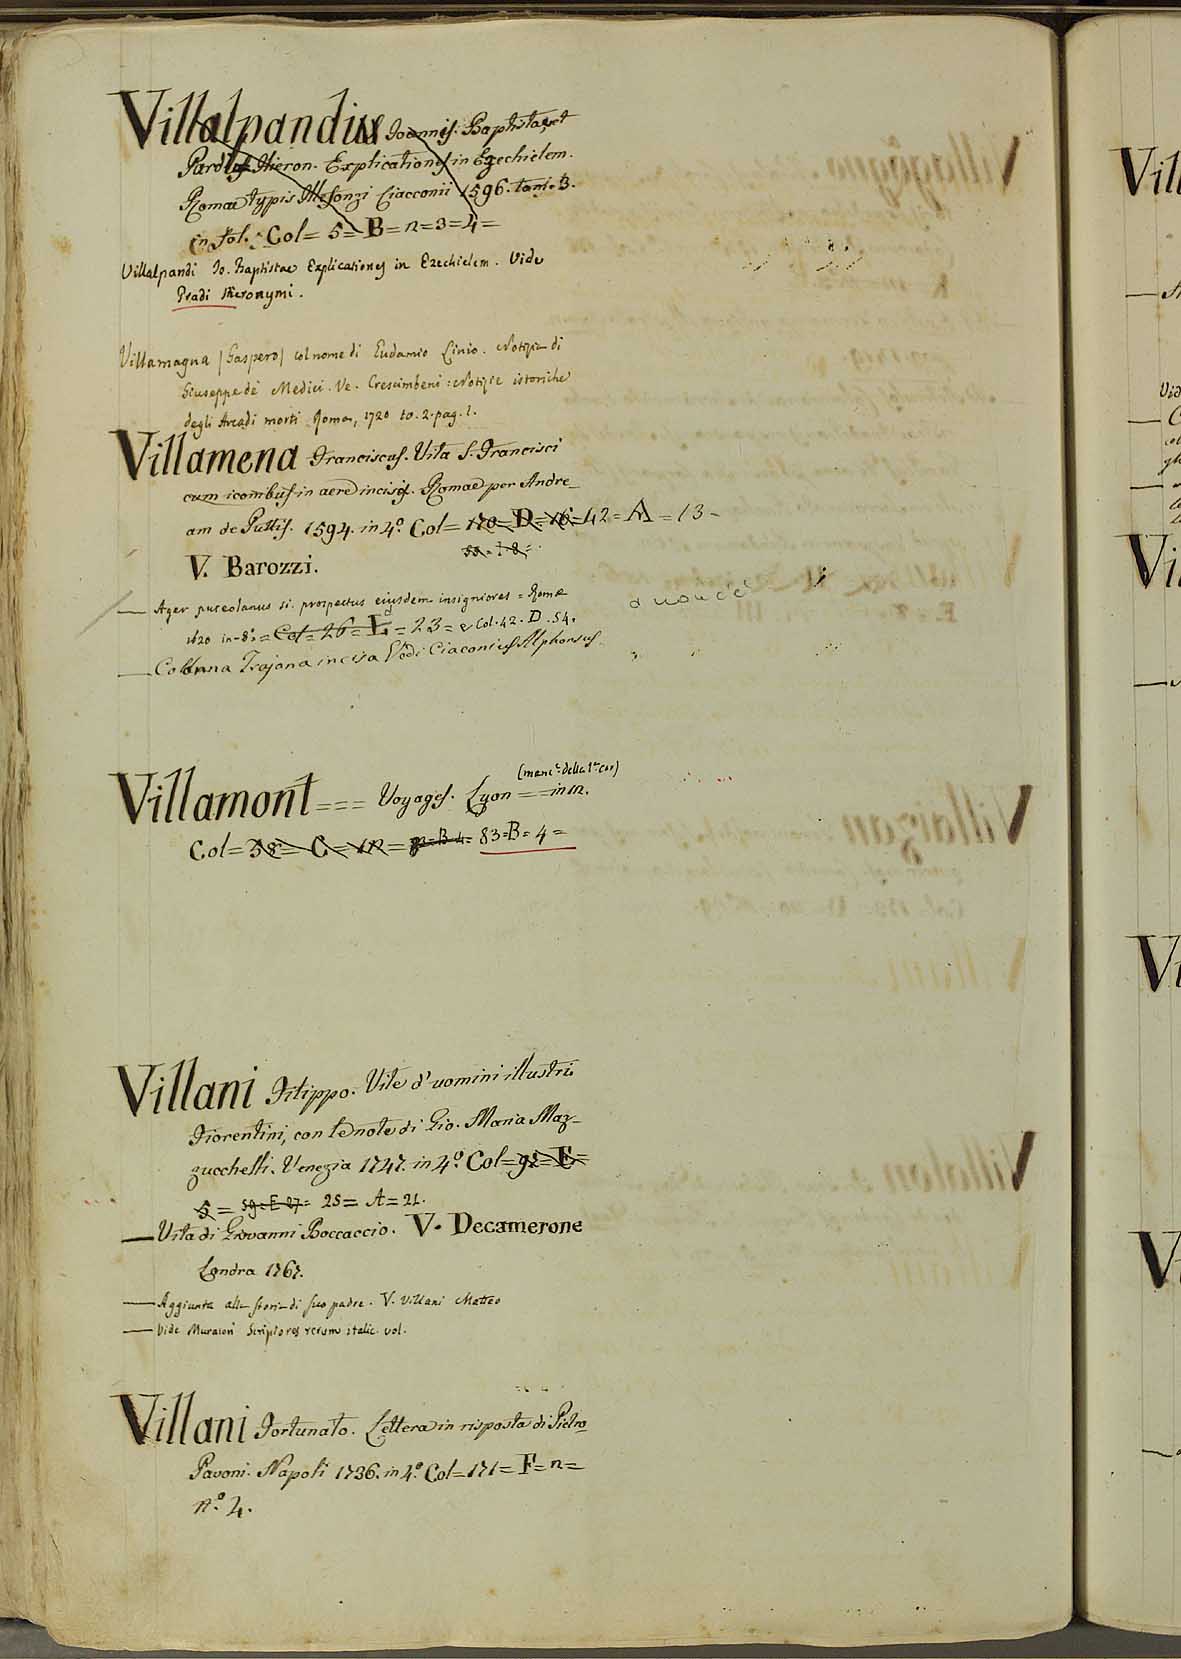 Villalpandus Joannis. Baptista et
Pardus Hieron. Explicationes in Ezechielem.
Romae typis Illefonzi Ciacconii 1596. tom. 3.
in fol. Col= 5= B= n=3=4=
Villalpandi Jo. Baptistae Explicationes in Ezechielem. Vide
Pradi Hieronymi.
Villamagna (Gaspero) col nome di Eudamio Linio. Notizie di
Giuseppe de' Medici. Ve. Crescimbeni: Notizie istoriche
degli Arcadi morti Roma, 1720 to. 2. pag. 1.
Villamena Franciscus. Vita S. Francisci
cum iconibus in aere incisis. Romae per Andre_
am de Puttis. 1594. in 4º. Col= 170= D= 16= 42= A= 13-
V. Barozzi.
— Ager puteolanus si. prospectus eiusdem insigniores = Romae
1620 in-8º. = Col= 26= E= 23= e Col. 42. D. 54.
— Colonna Trajana incisa Vedi Ciaconius Alphonsus
(manc.e della 1.a car)
Villamont === Voyages. Lyon == in 12.
Col= 38= C= 12= B 4= 83=B= 4=
Villani Filippo. Vite d'uomini illustri
Fiorentini, con le note di Gio. Maria Maz-
zucchelli. Venezia 1747. in 4º. Col= 92= E=
5= 59= E 27= 25= A= 21.
— Vita di Giovanni Boccaccio. V. Decamerone
Londra 1767.
— Aggiunta alla storia di suo padre. V. Villani Matteo
— Vide Muratori Scriptores rerum italic. vol.
Villani Fortunato. Lettera in risposta di Pietro
Pavoni. Napoli 1736. in 4º. Col= 171= F= n=
nº. 4.